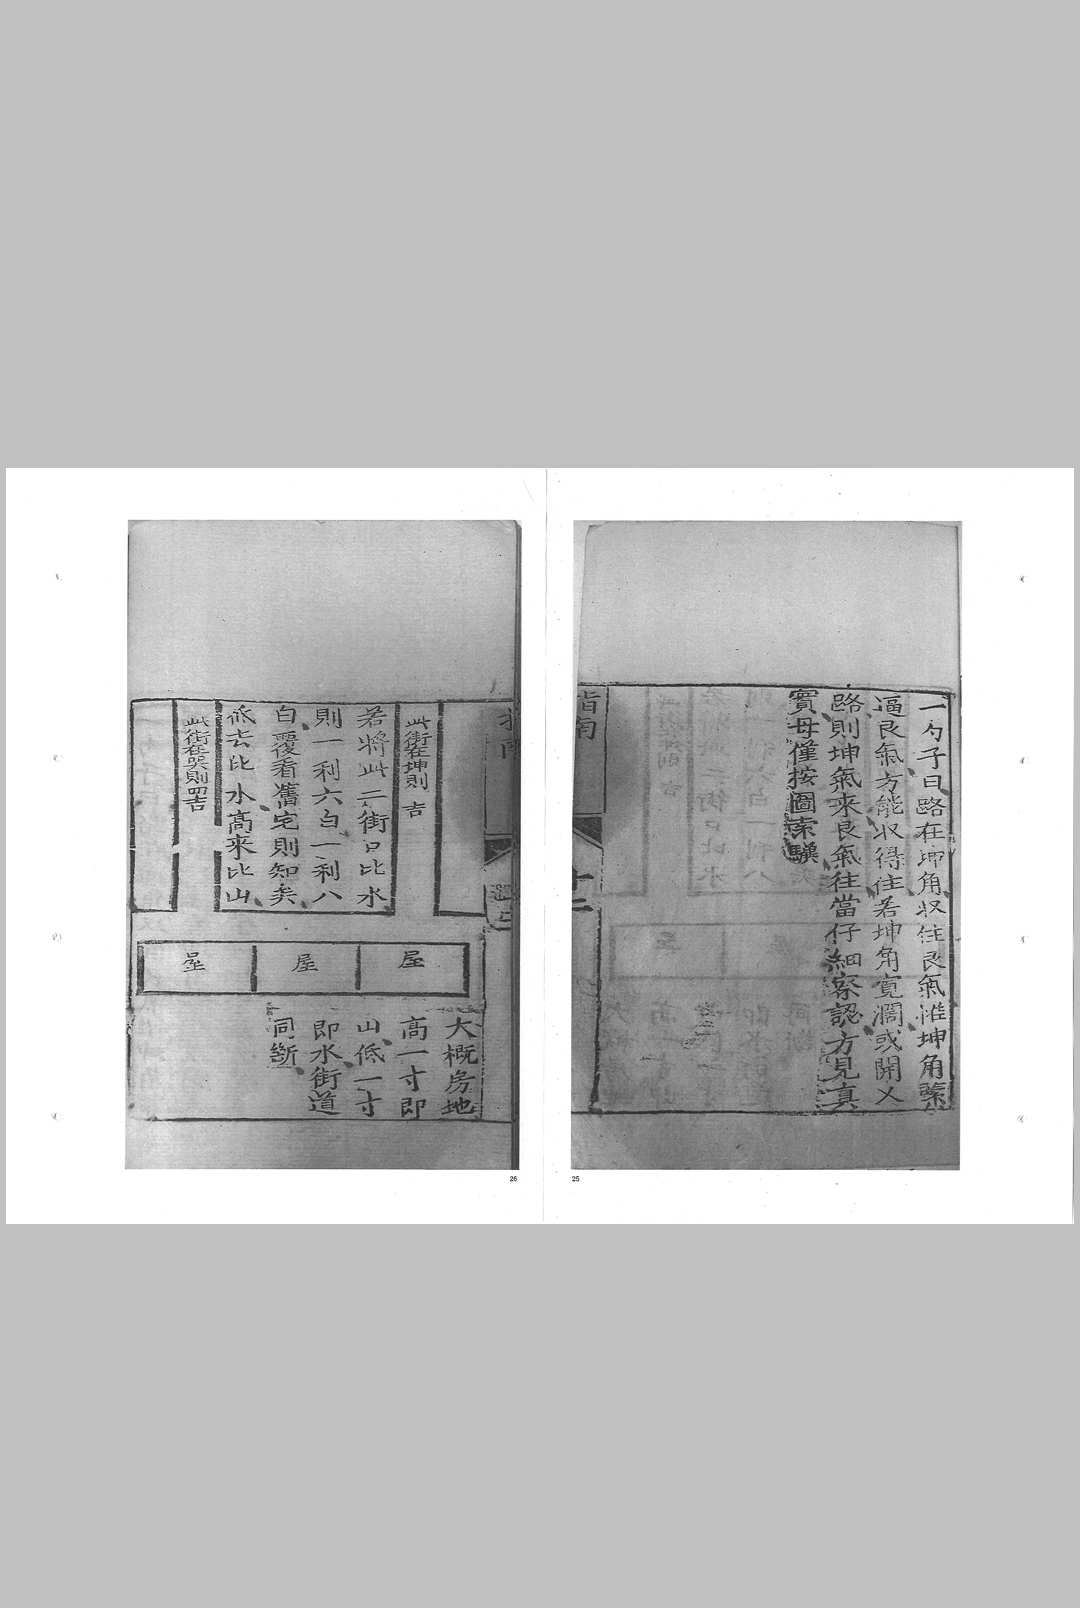 一勺子曰路在坤角収住艮氣惟坤角緊
逼艮氣方能収得住若坤角寬濶或開乂
路則坤氣來艮氣往當仔細察認方見真
實毋僅按圖索驥
指南
十二
此街在坤則吉
若將此二街日比水
則一利六白一利八
白覆看舊宅則知矣
低去比水高來比山
此街在巽則四吉
屋
屋
屋
大概房地
高一寸即
山低一寸
即水街道
同斷
25
26